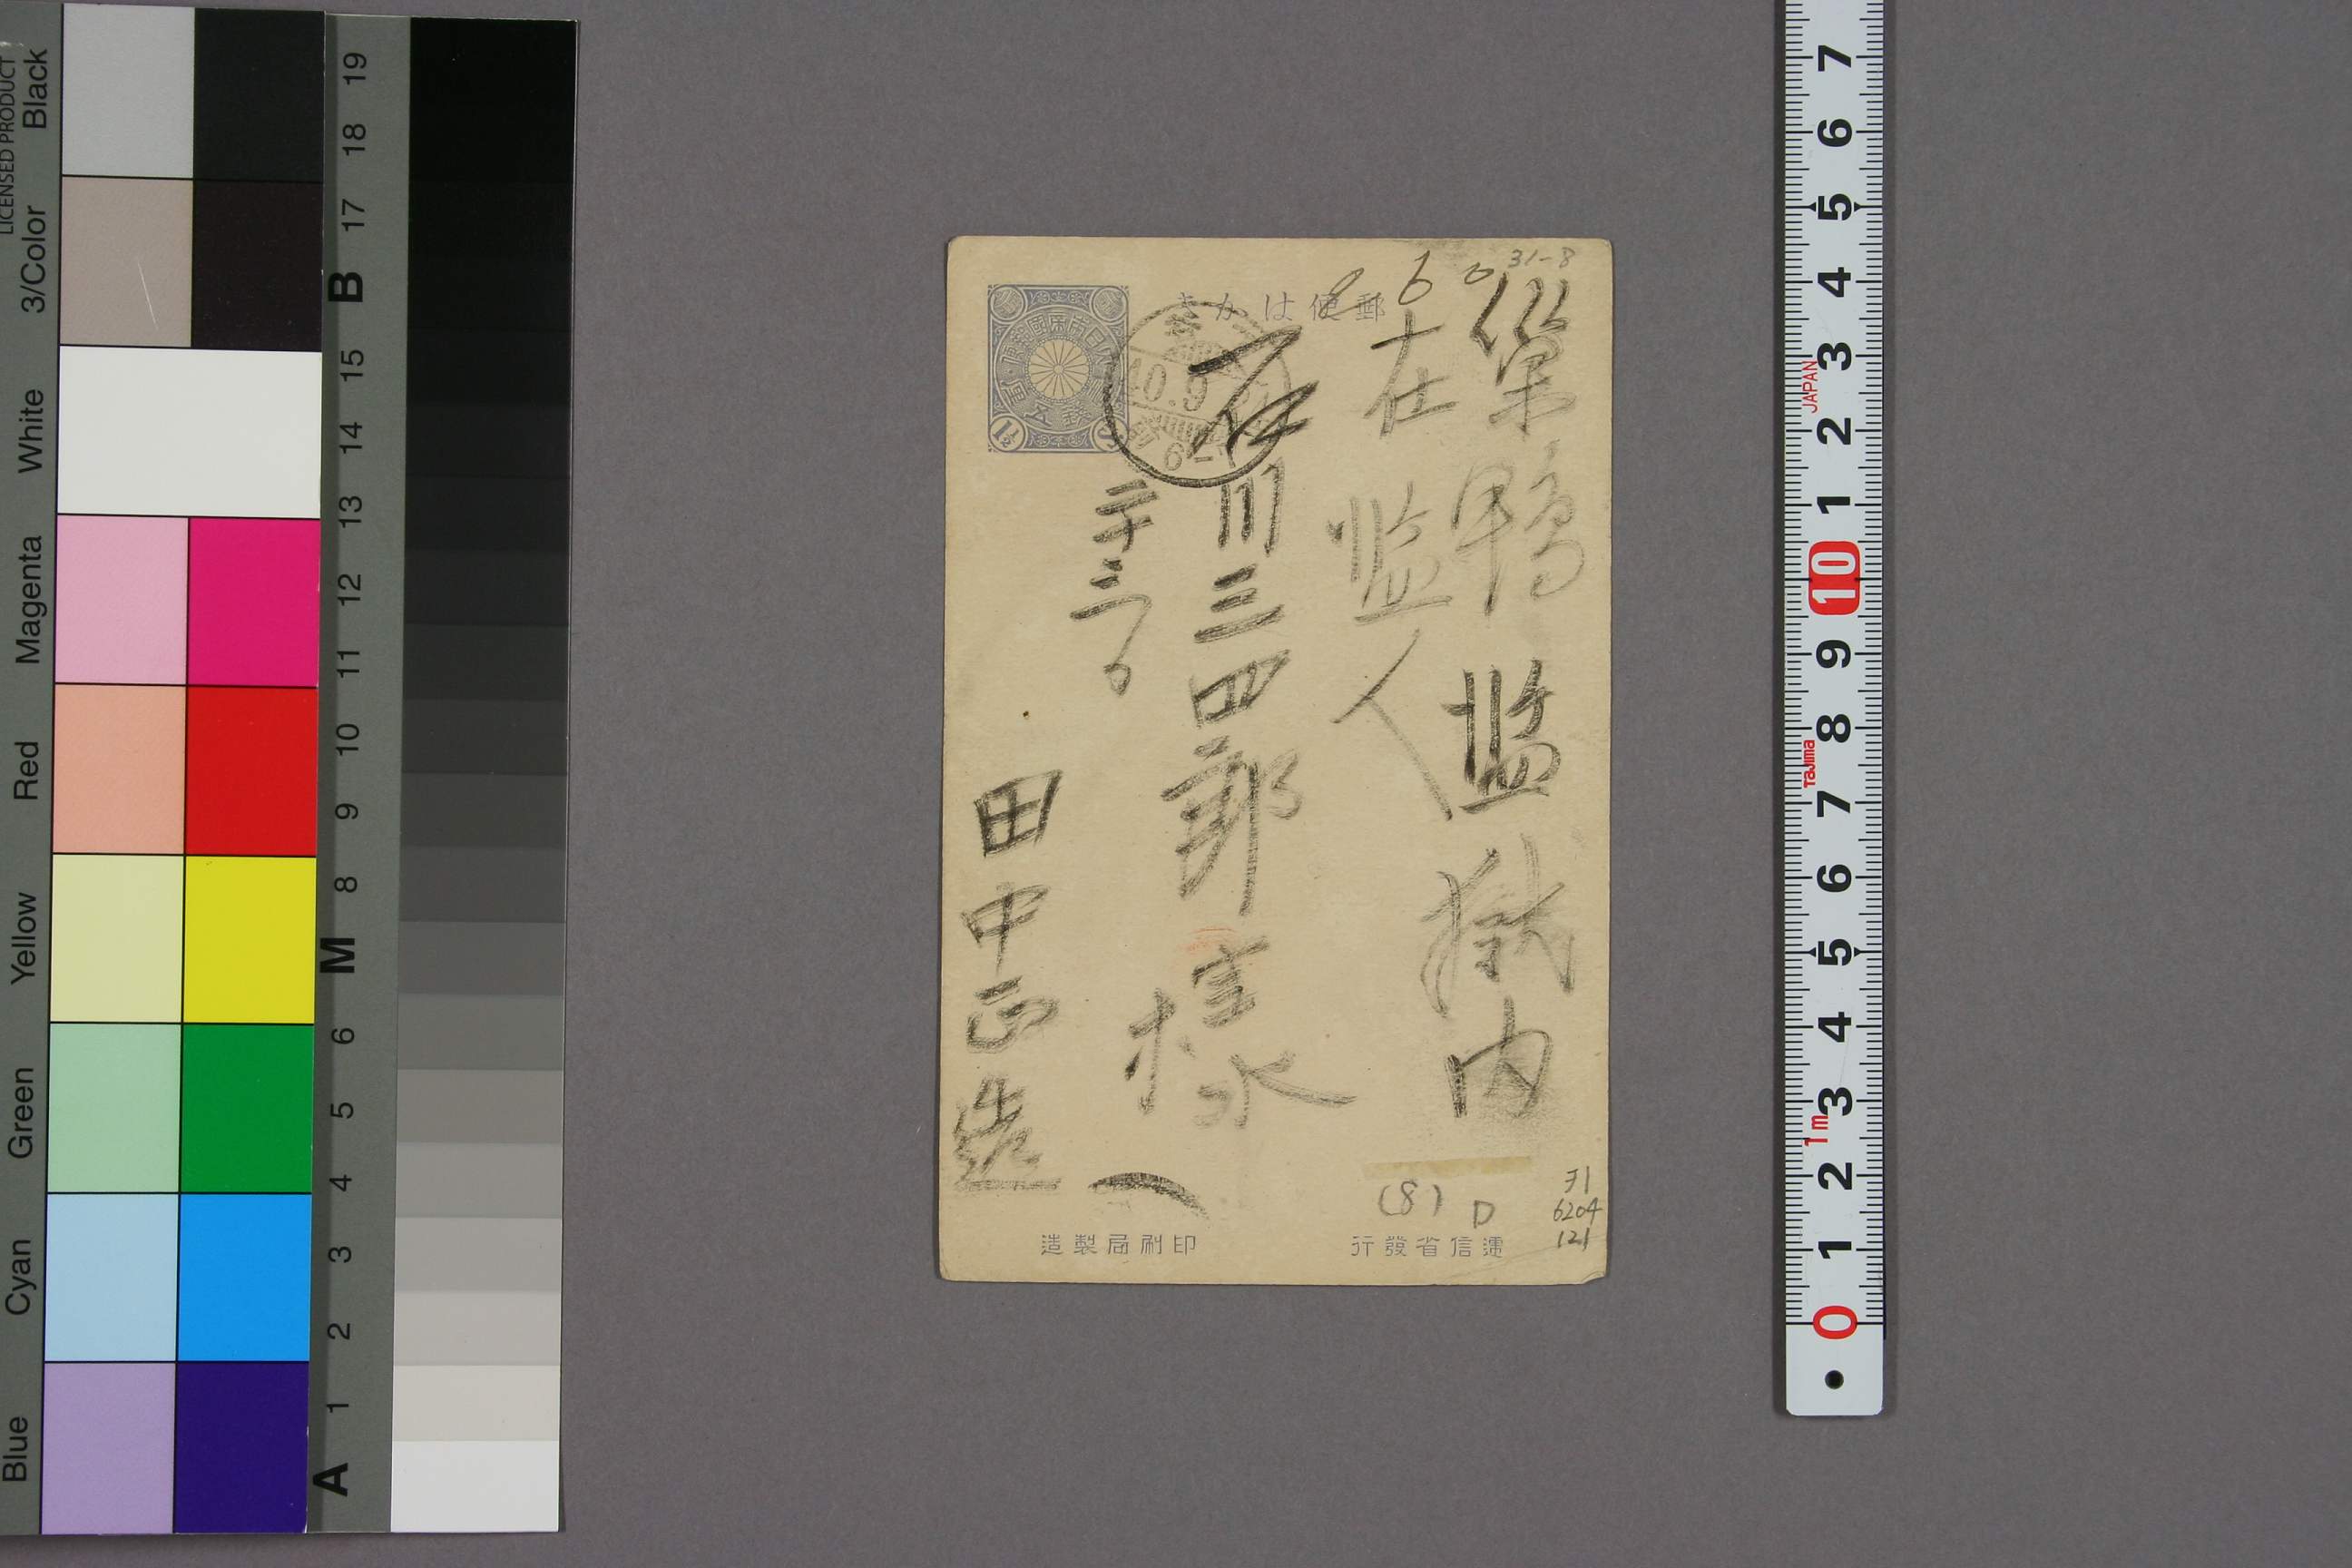 LICENSED PRODUCT
Black
3/Color
White
Magenta
Red
Yellow
Green
Cyan
Blue
19
18
17
B
15
14
13
12
11
10
9
8
M
6
5
4
3
2
1
A
31-8
6
郵便はかき
巣鴨監獄内
在監人
石川三四郎様
田中正造
10.9
(8) D
31
6204
121
逓信省發行
印刷局製造
7
6
5
4
3
JAPAN
2
1
10
9
8
Tajima
7
6
5
4
3
1m
2
1
0